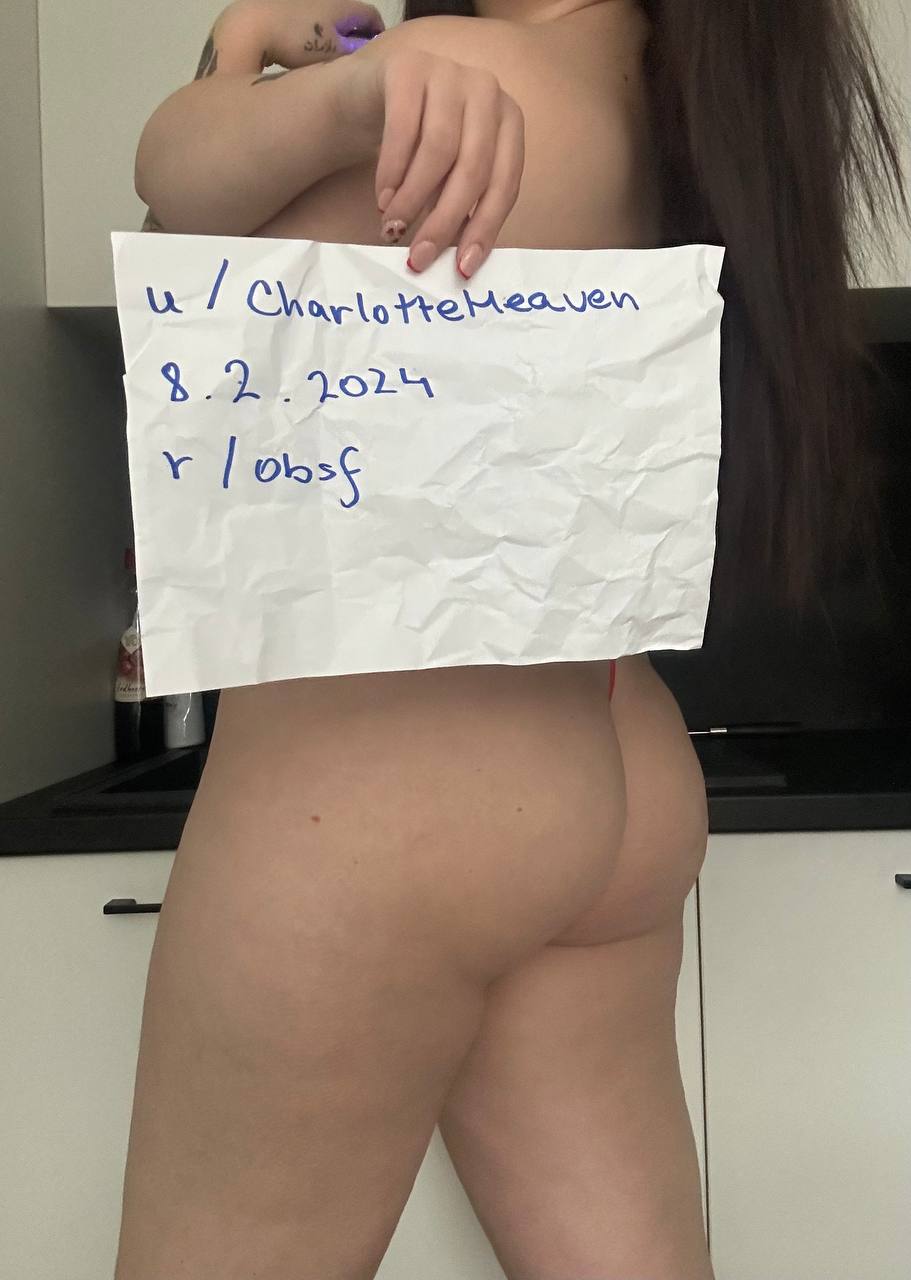 u / CharlotteHeaven
8.2.2024
r / obsf